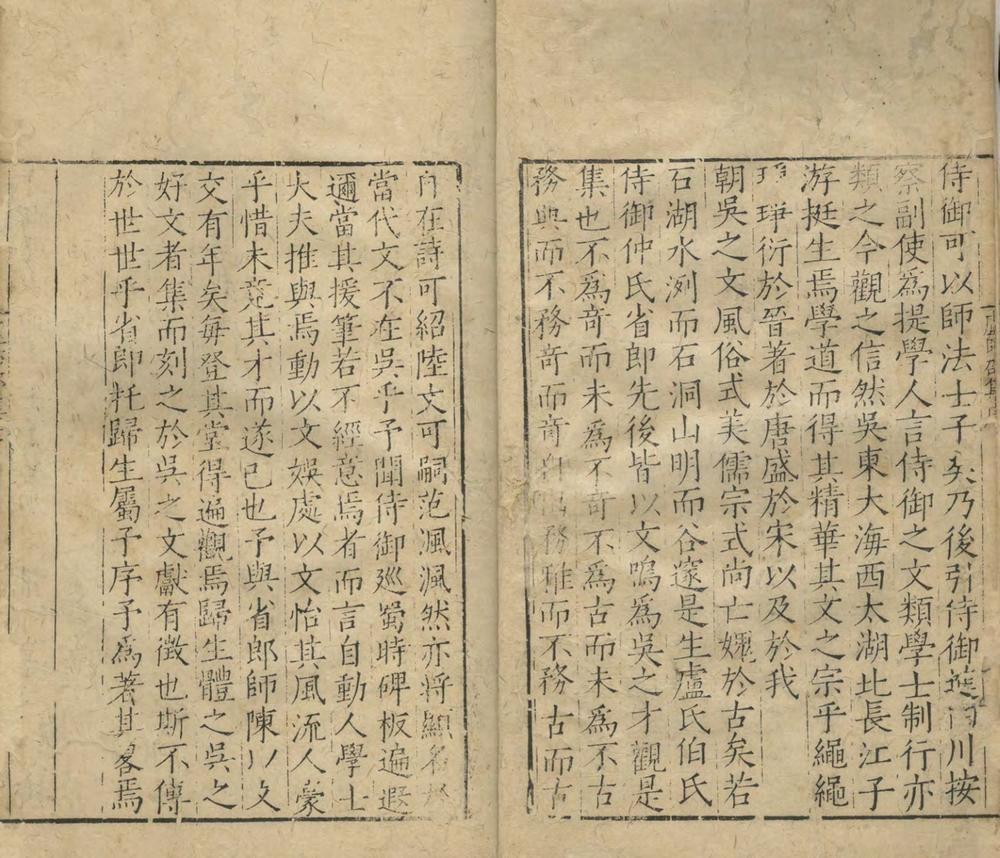 侍御可以師法士子矣乃後引侍御進四川按
察副使為提學人言侍御之文類學士制行亦
類之今觀之信然吳東大海西太湖北長江子
游挺生焉學道而得其精華其文之宗乎繩繩
琤琤衍於晉著於唐盛於宋以及於我
朝吳之文風俗式美儒宗式尚亡媿於古矣若
石湖水洌而石洞山明而谷邃是生盧氏伯氏
侍御仲氏省郎先後皆以文鳴為吳之才觀是
集也不為奇而未為不奇不為古而未為不古
務典而不務奇而奇自務雅而不務古而古
自在詩可紹陸文可嗣范渢渢然亦將顯名於
當代文不在吳乎予聞侍御廵蜀時碑板遍遐
邇當其援筆若不經意焉者而言自動人學士
大夫推與焉動以文娛處以文怡其風流人豪
乎惜未竟其才而遂已也予與省郎師陳以文
交有年矣每登其堂得遍觀焉歸生體之吳之
好文者集而刻之於吳之文獻有徵也斯不傳
於世世乎省郎托歸生屬予序予為著其畧焉